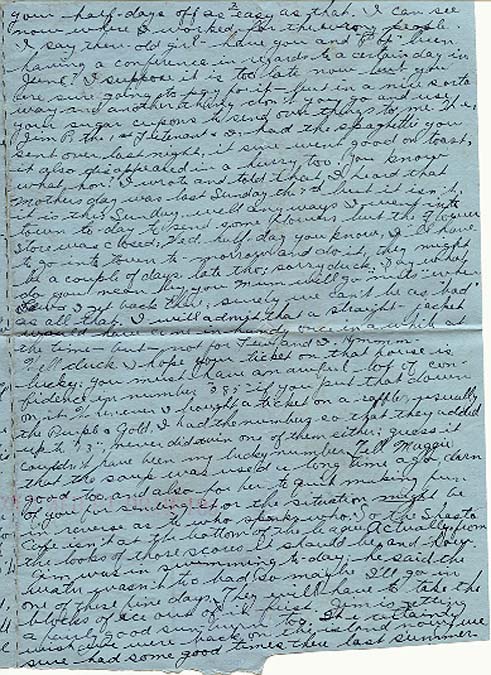 your half-days off as easy as that. I can see
now where I worked for the wrong people
I say there old girl have you and been
having a conference in regards to a certain day in
June? I suppose it is too late now you
are sure going to pay for it but in a nice sorta
way and another thing don't you go and use
your sugar cupons to send over things to me The,
Jim P. the, 1st Lieutenant & I had the spaghettie you
sent over last night, it sure went good on toast,
it also disappeared in a hurry too, You know
what, hon? I wrote and told that I heard that
mothers day was last Sunday the but it isn't,
it is this Sunday, well any ways I went into
town to-day to send some flowers but the flower
store was closed; Wed. half-day you know, I'll have
to go into town to-morrow and do it, they might
be a couple of days late tho; sorry duck. Say what
do you mean by you mum will go when
I get back tho'; surely we can't be as bad
as all that. I will admit that a straight-jacket
would have come in handy once in a while at
the time - but - not for and I, Hmmm.
Well duck I hope your ticket on that house is
lucky; you must have an awful lot of con-
fidence in number if you put that down
on it. Whenever I bought a ticket on a raffle, usually
the Purple & Gold, I had the numbers so that they added
up to 13, never did win one of them either; guess it
couldn't have been my lucky number. Tell Maggie
that the soup was used a long time ago darn
good too and also for her to quit making fun
of you for or the situation might be
in reverse as to who So the Shasta
Cafe isn't at the bottom of the league. Actually from
the looks of those scores it should be and how.
Jim was in swimming to-day, he said the
water wasn't to bad so maybe I'll go in
one of these fine days. They will have to take the
blocks of ice out of it first. Jim is getting
a fairly good sun-burn too. I'm
wish we were back on the island now, we
sure had some good times there last summer